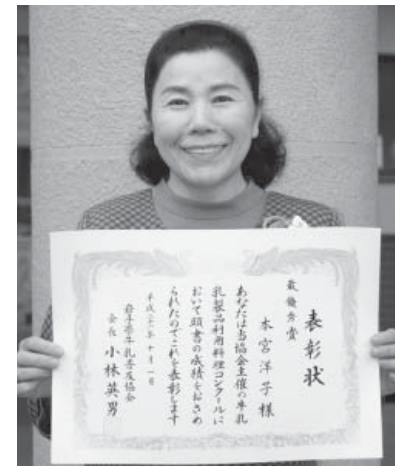 表彰状
最優秀賞
本宮洋子様
あなたは当協会主催の牛乳
乳製品利用料理コンクールに
おいて頭書の成績をおさめ
られたのでこれを表彰します
平成二十一年十月一日
岩手県牛乳普及協会
会長 小林英男